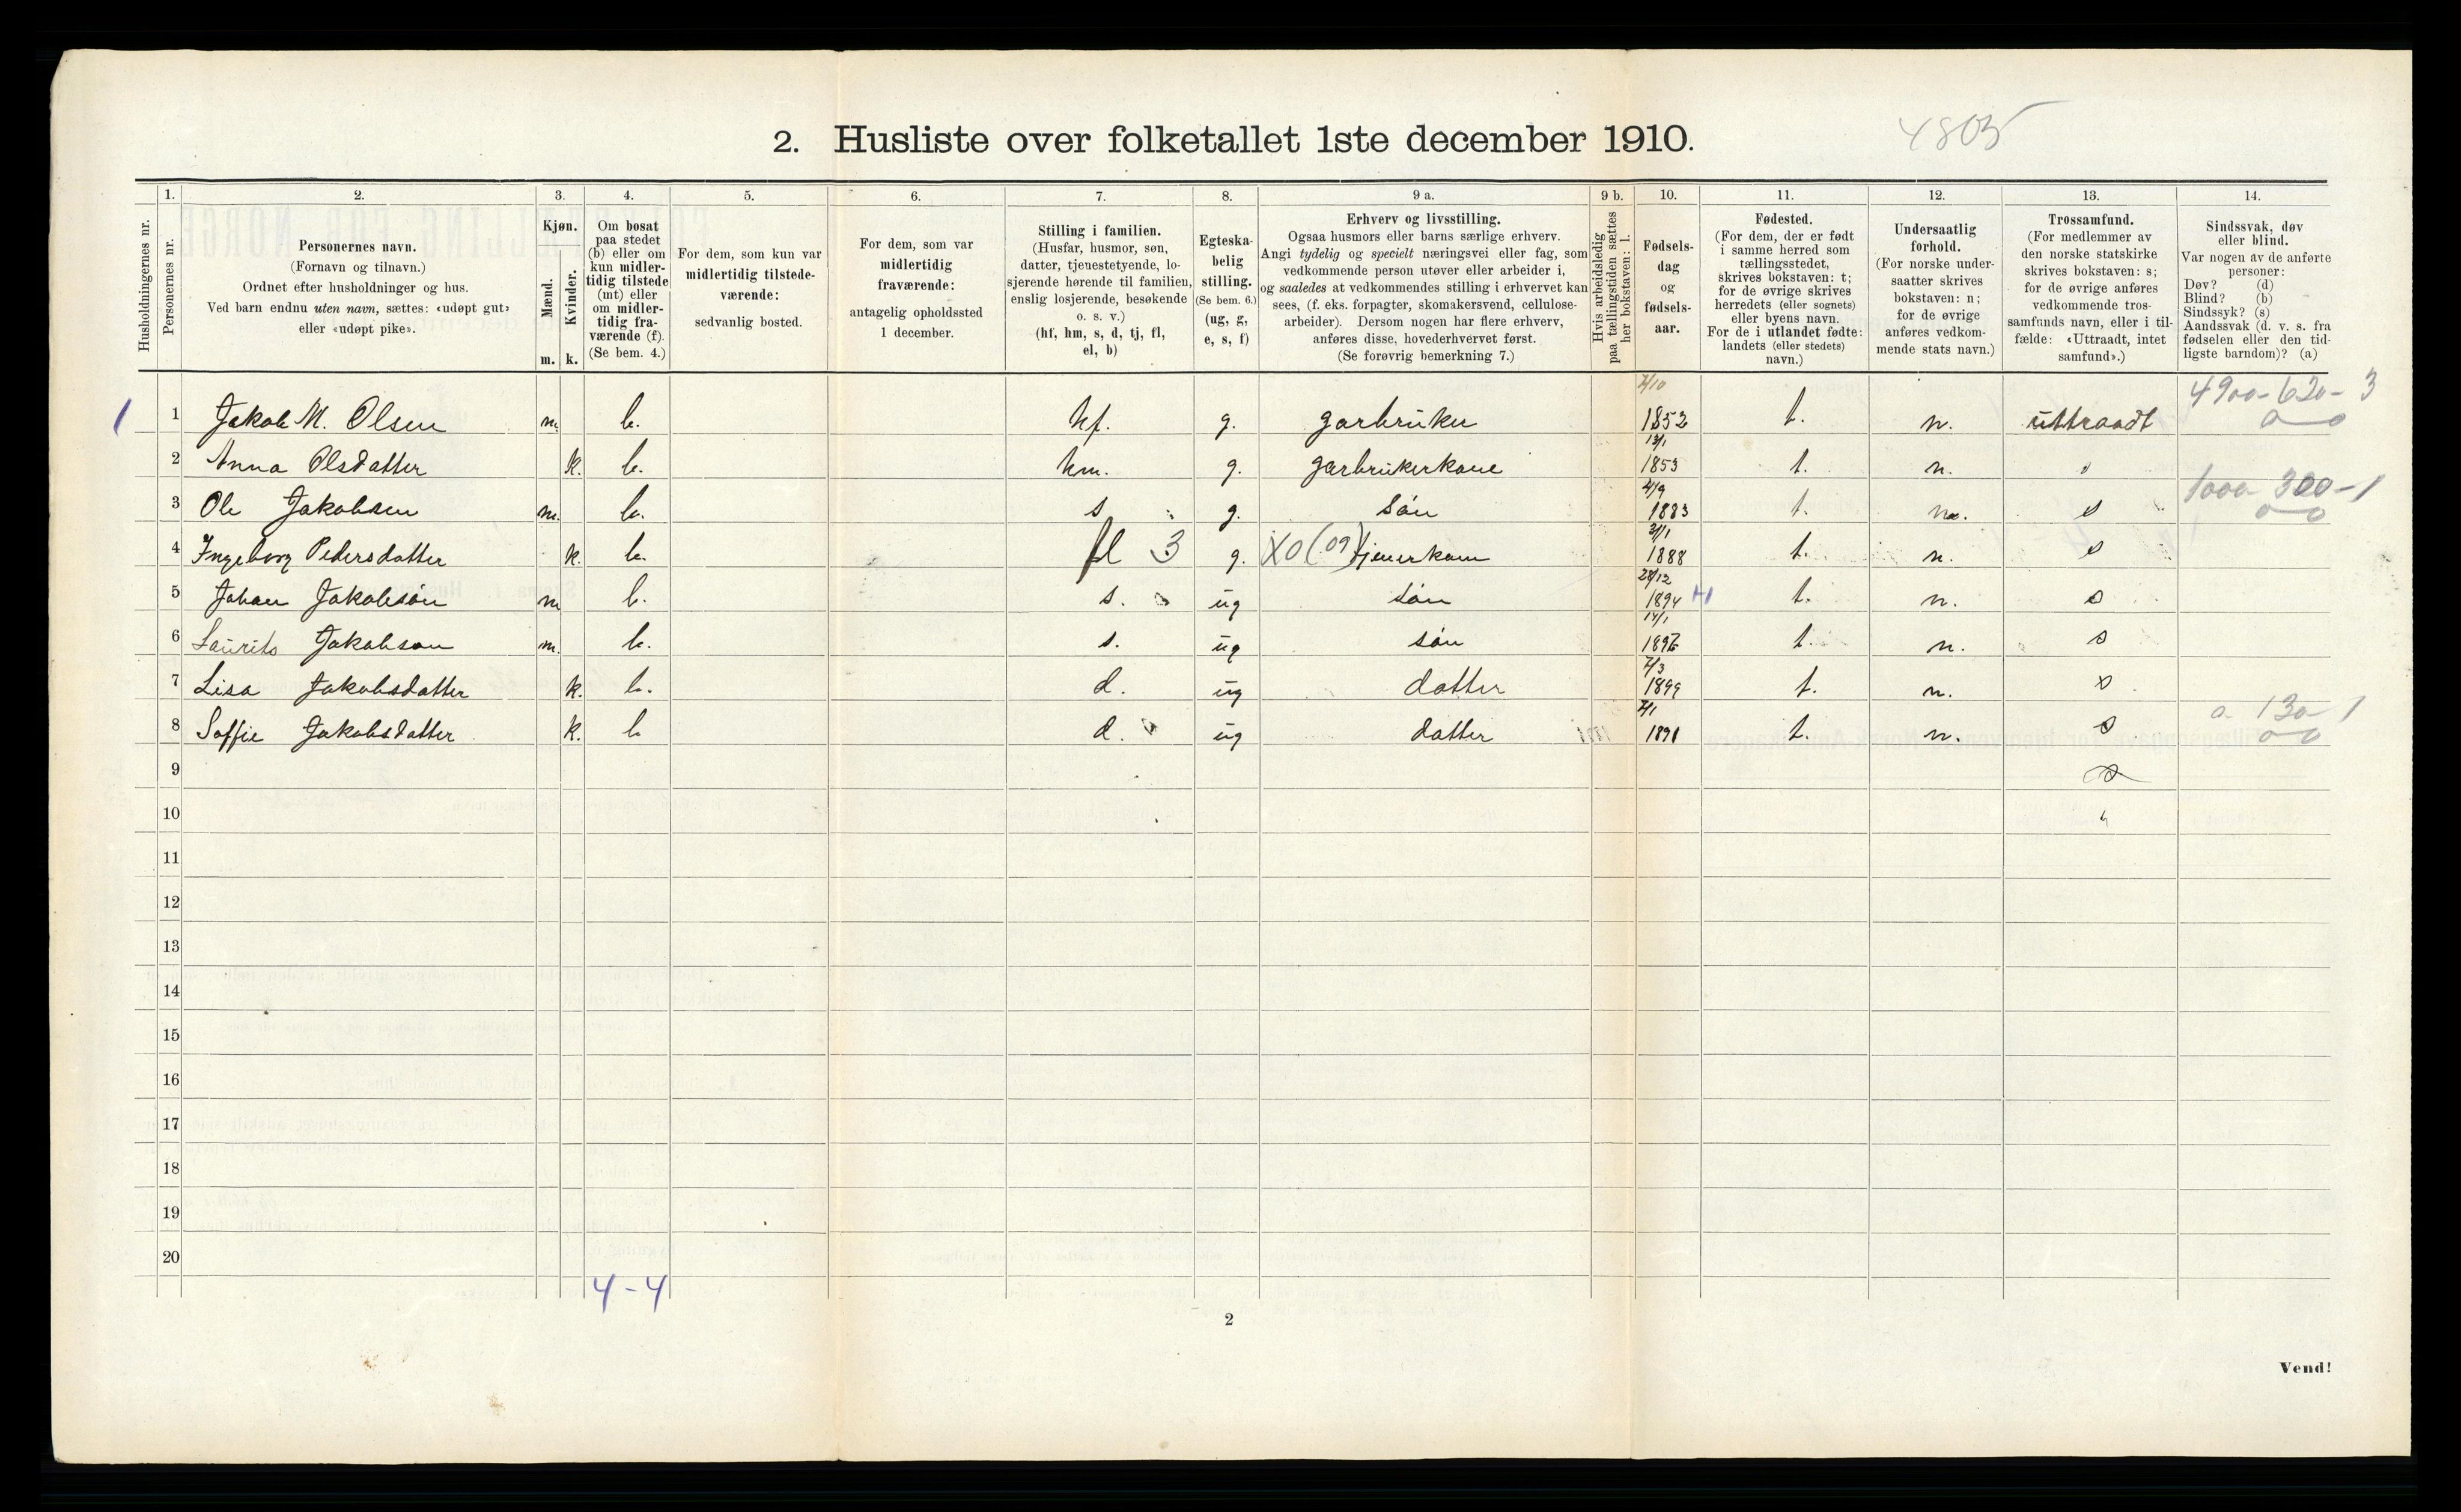 2. Husliste over folketallet 1ste december 1910.
4805
Husholdningernes nr.
1. Personernes nr.
2. Personernes navn.
(Fornavn og tilnavn.)
Ordnet efter husholdninger og hus.
Ved barn endnu uten navn, sættes: «udøpt gut»
eller «udøpt pike».
3. Kjøn.
Mænd. Kvinder.
m. k.
4. Om bosat
paa stedet
(b) eller om
kun midler-
tidig tilstede
(mt) eller
om midler-
tidig fra-
værende (f).
(Se bem. 4.)
5. For dem, som kun var
midlertidig tilstede-
værende:
sedvanlig bosted.
6. For dem, som var
midlertidig
fraværende:
antagelig opholdssted
1 december.
7. Stilling i familien.
(Husfar, husmor, søn,
datter, tjenestetyende, lo-
sjerende hørende til familien,
enslig losjerende, besøkende
o. s. v.)
(hf, hm, s, d, tj, fl,
el, b)
8. Egteska-
belig
stilling.
(Se bem. 6.)
(ug, g,
e, s, f)
9 a. Erhverv og livsstilling.
Ogsaa husmors eller barns særlige erhverv.
Angi tydelig og specielt næringsvei eller fag, som
vedkommende person utøver eller arbeider i,
og saaledes at vedkommendes stilling i erhvervet kan
sees, (f. eks. forpagter, skomakersvend, cellulose-
arbeider). Dersom nogen har flere erhverv,
anføres disse, hovederhvervet først.
(Se forøvrig bemerkning 7.)
9 b. Hvis arbeidsledig
paa tællingstiden sættes
her bokstaven: l.
10. Fødsels-
dag
og
fødsels-
aar.
11. Fødested.
(For dem, der er født
i samme herred som
tællingsstedet,
skrives bokstaven: t;
for de øvrige skrives
herredets (eller sognets)
eller byens navn.
For de i utlandet fødte:
landets (eller stedets)
navn.)
12. Undersaatlig
forhold.
(For norske under-
saatter skrives
bokstaven: n;
for de øvrige
anføres vedkom-
mende stats navn.)
13. Trossamfund.
(For medlemmer av
den norske statskirke
skrives bokstaven: s;
for de øvrige anføres
vedkommende tros-
samfunds navn, eller i til-
fælde: «Uttraadt, intet
samfund».)
14. Sindssvak, døv
eller blind.
Var nogen av de anførte
personer:
Døv? (d)
Blind? (b)
Sindssyk? (s)
Aandssvak (d. v. s. fra
fødselen eller den tid-
ligste barndom)? (a)
1 1 Jakob M. Olsen m. b. hf. g. garbruker 2/10 1852 t. n. uttraadt 4900-620-3
2 Anna Olsdatter k. b. hm. g. garbrukerkone 13/1 1853 t. n. "
3 Ole Jakobsen m. b. s g. Søn 4/9 1883 t. n. s 1000-300-1
4 Ingeborg Pedersdatter k. b. fl 3 g. XO (09) 31/1 1888 t. n. s
5 Johan Jakobsøn m b. s. ug søn 28/12 1894 t. n. s
6 Laurits Jakobsøn m. b. s. ug søn 14/1 1896 t. n. s
7 Lisa Jakobsdatter k. b. d. ug datter 7/3 1899 t. n. s
8 Soffie Jakobsdatter k. b d. ug datter 7/1 1891 t. n. s 0-130-1
9 s
10
11
12
13
14
15
16
17
18
19
20
4-4
2
Vend!